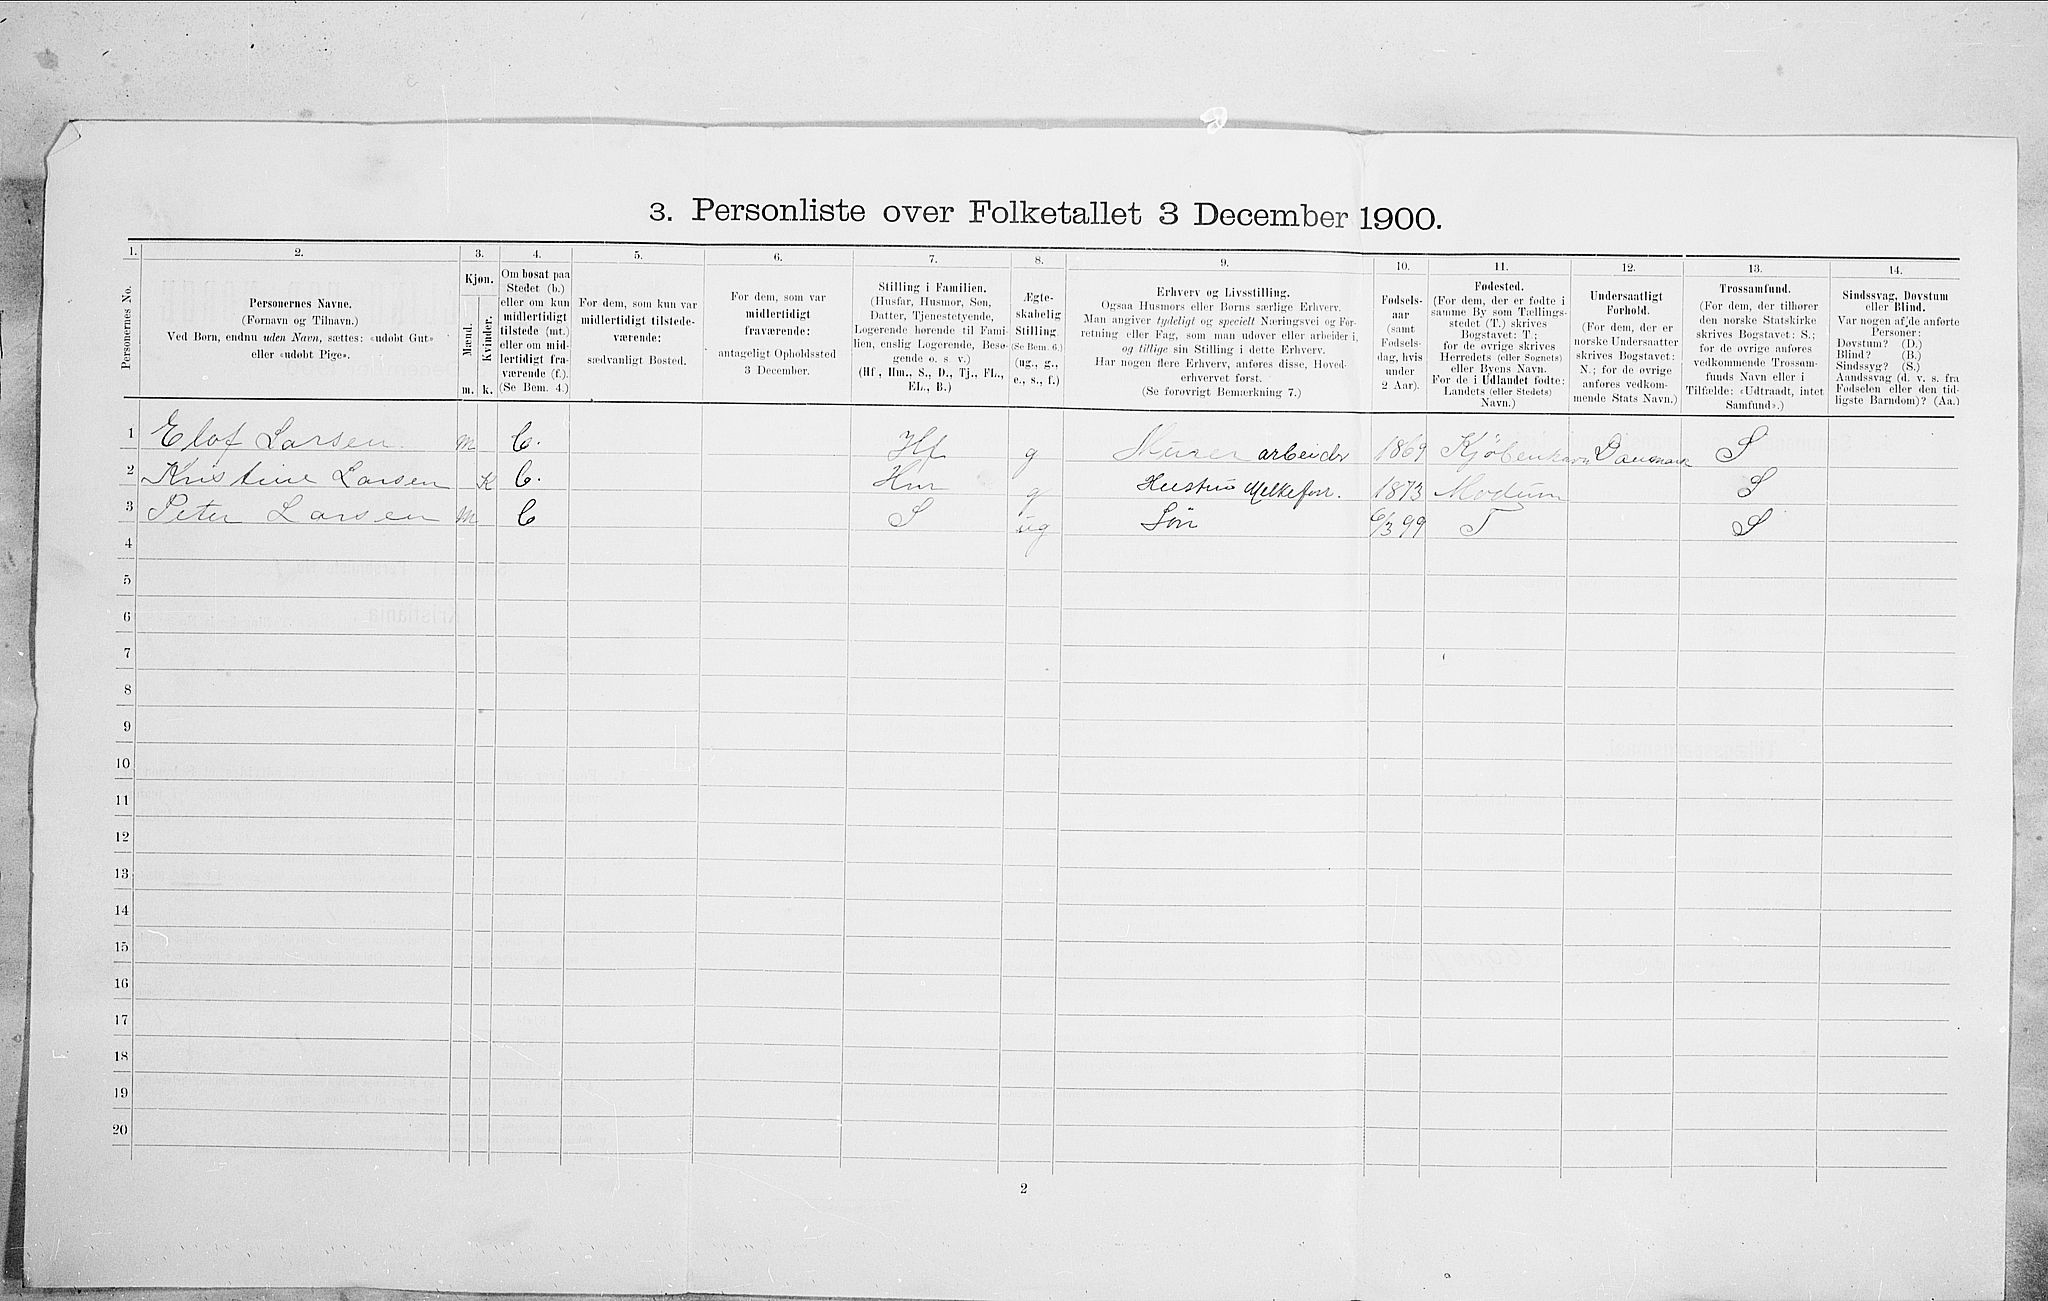 3. Personliste over Folketallet 3 December 1900.
1. 2. 3. 4. 5. 6. 7. 8. 9. 10. 11. 12. 13. 14.
Personernes No.
Personernes Navne.
(Fornavn og Tilnavn.)
Ved Børn, endnu uden Navn, sættes: «udøbt Gut»
eller «udøbt Pige».
Kjøn.
Mænd.
Kvinder.
m. k.
Om bosat paa
Stedet (b.)
eller om kun
midlertidigt
tilstede (mt.)
eller om mid-
lertidigt fra-
værende (f.).
(Se Bem. 4.)
For dem, som kun var
midlertidigt tilstede-
værende:
sædvanligt Bosted.
For dem, som var
midlertidigt
fraværende:
antageligt Opholdssted
3 December.
Stilling i Familien.
(Husfar, Husmor, Søn,
Datter, Tjenestetyende,
Logerende hørende til Fami-
lien, enslig Logerende, Besø-
gende o. s. v.)
(Hf., Hm., S., D., Tj., FL.,
EL., B.)
Ægte-
skabelig
Stilling.
(Se Bem. 6.)
(ug., g.,
e., s., f.)
Erhverv og Livsstilling.
Ogsaa Husmors eller Børns særlige Erhverv.
Man angiver tydeligt og specielt Næringsvei og For-
retning eller Fag, som man udøver eller arbeider i,
og tillige sin Stilling i dette Erhverv.
Har nogen flere Erhverv, anføres disse, Hoved-
erhvervet først.
(Se forøvrigt Bemærkning 7.)
Fødsels-
aar
(samt
Fødsels-
dag, hvis
under
2 Aar).
Fødested.
(For dem, der er fødte i
samme By som Tællings-
stedet (T.) skrives
Bogstavet: T;
for de øvrige skrives
Herredets (eller Sognets)
eller Byens Navn.
For de i Udlandet fødte:
Landets (eller Stedets)
Navn.)
Undersaatligt
Forhold.
(For dem, der er
norske Undersaatter
skrives Bogstavet:
N.; for de øvrige
anføres vedkom-
mende Stats Navn.)
Trossamfund.
(For dem, der tilhører
den norske Statskirke
skrives Bogstavet: S.;
for de øvrige anføres
vedkommende Trossam-
funds Navn eller i
Tilfælde: «Udtraadt, intet
Samfund».)
Sindssvag, Døvstum
eller Blind.
Var nogen af de anførte
Personer:
Døvstum? (D.)
Blind? (B.)
Sindssyg? (S.)
Aandssvag (d. v. s. fra
Fødselen eller den tid-
ligste Barndom)? (Aa.)
1 Elof Larsen m b. Hf g Murer arbeider 1869 Kjöbenhavn Danmark S
2 Kristine Larsen K b. Hm g Hustru Melkeforr. 1873 Modum S
3 Peter Larsen m b S ug Sön 6/3 99 T S
4
5
6
7
8
9
10
11
12
13
14
15
16
17
18
19
20
2